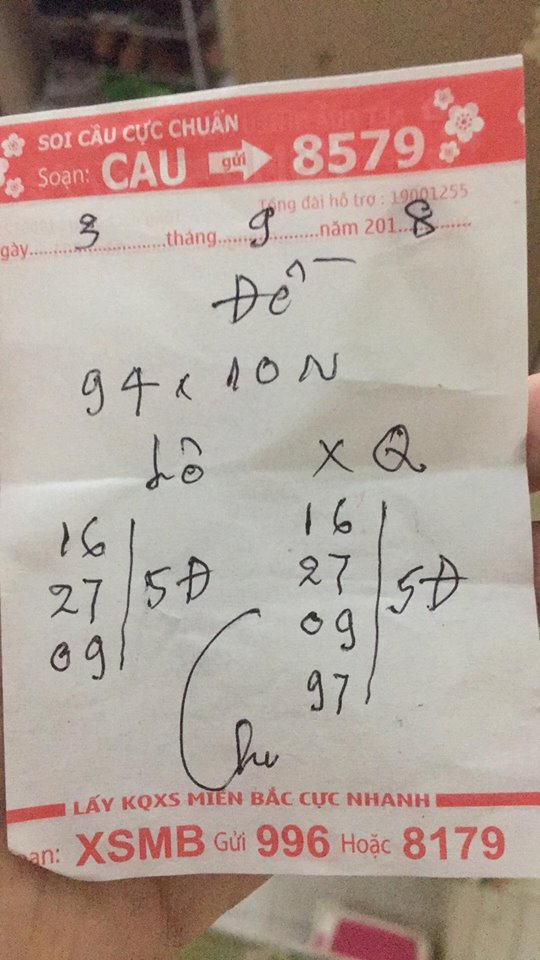 SOI CẦU CỰC CHUẨN
Soạn: CAU gửi 8579
Tổng đài hỗ trợ : 19001255
gày.....3.....tháng.....9.....năm 201...8...
Đề
94 x 10N
Lô XQ
16 16
27 5Đ 27 5Đ
09 09
97
LẤY KQXS MIỀN BẮC CỰC NHANH
ạn: XSMB Gửi 996 Hoặc 8179